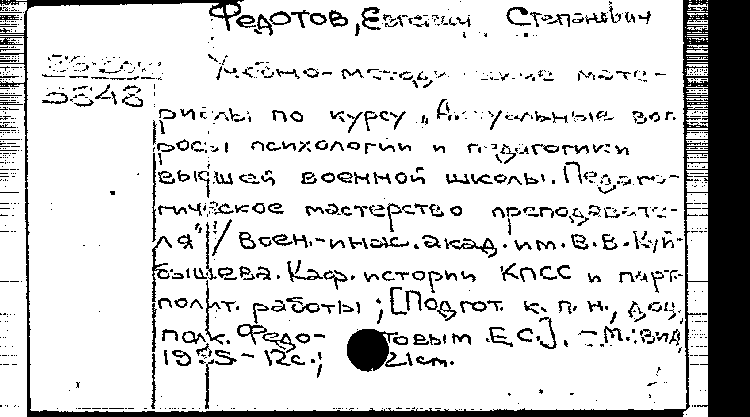 Федотов, Евгений Степанович
Учебно-методические мате-
5848
риалы по курсу „Актуальные воп
росы психологии и педагогики
высшей военной школы. Педаго-
гическое мастерство преподавате-
ля" / Воен.-инж. акад. им. В. В. Куй-
бышева. Каф. истории КПСС и парт
полит. работы ; [Подгот. к. п. н., доц,
полк. Федо- товым Е.С.]. - М.: ВИА,
1985 - 12с.; 21см.